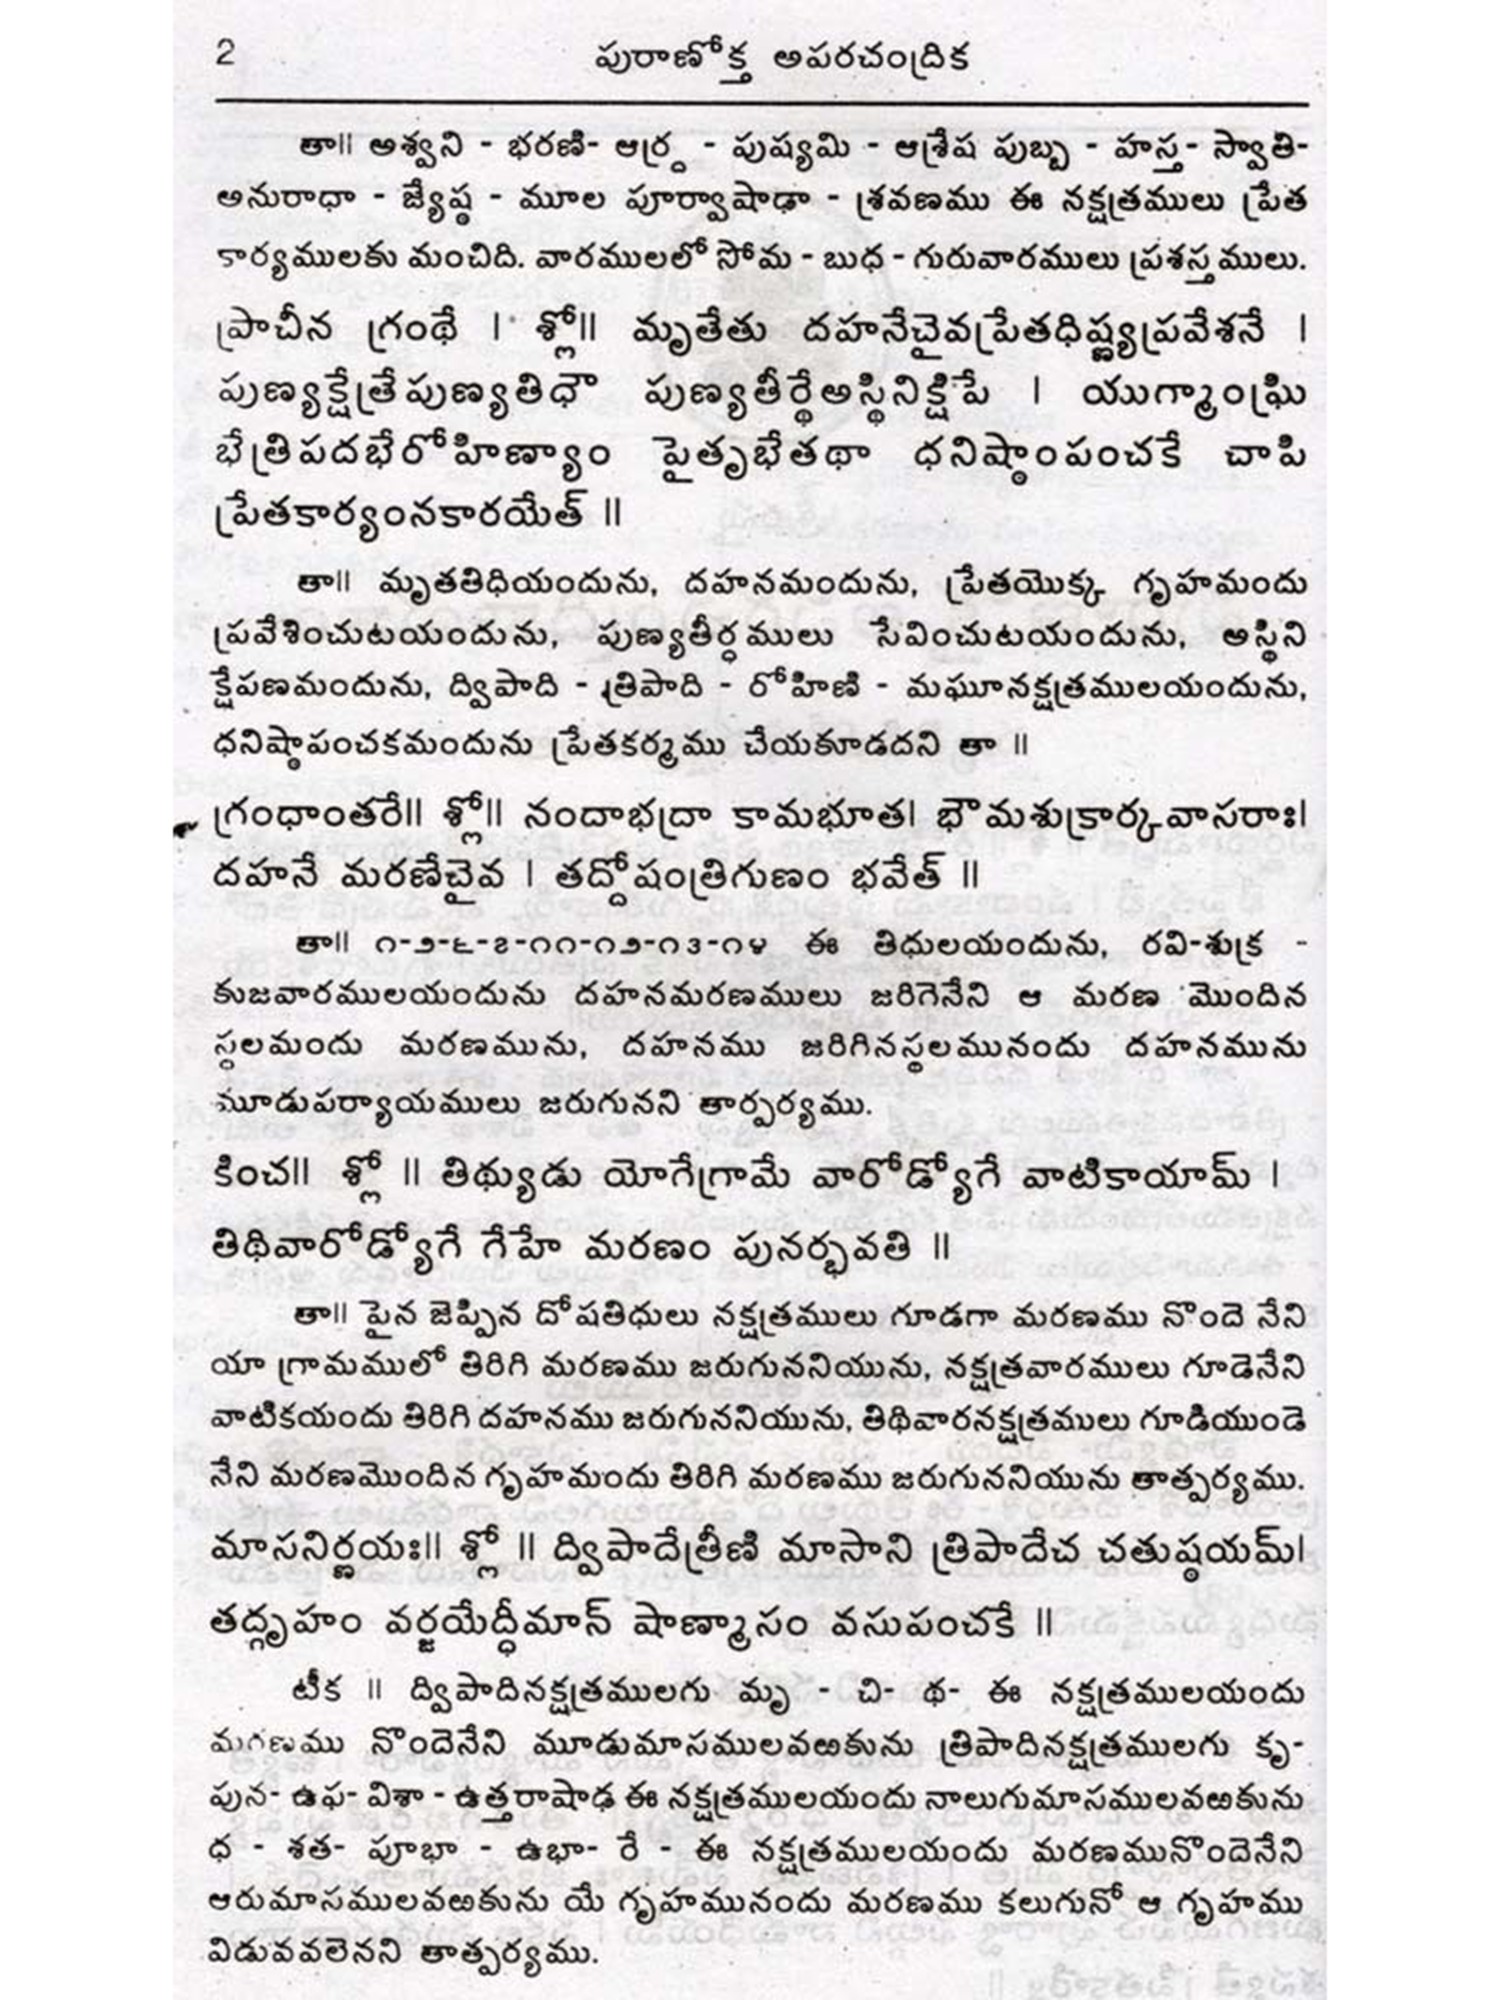 2
పురాణోక్త అపరచంద్రిక
తా॥ అశ్వని - భరణి- ఆర్ద్ర - పుష్యమి - ఆశ్రేష పుబ్బ - హస్త- స్వాతి-
అనురాధా - జ్యేష్ఠ - మూల పూర్వాషాఢా - శ్రవణము ఈ నక్షత్రములు ప్రేత
కార్యములకు మంచిది. వారములలో సోమ - బుధ - గురువారములు ప్రశస్తములు.
ప్రాచీన గ్రంథే । శ్లో॥ మృతేతు దహనేచైవప్రేతధిష్ణ్యప్రవేశనే ।
పుణ్యక్షేత్రేపుణ్యతిధౌ పుణ్యతీర్థేఅస్థినిక్షిపే । యుగ్మాంఘ్రి
భేత్రిపదభేరోహిణ్యాం పైతృభేతథా ధనిష్ఠాంపంచకే చాపి
ప్రేతకార్యంనకారయేత్ ॥
తా॥ మృతతిధియందును, దహనమందును, ప్రేతయొక్క గృహమందు
ప్రవేశించుటయందును, పుణ్యతీర్ధములు సేవించుటయందును, అస్థిని
క్షేపణమందును, ద్విపాది - త్రిపాది - రోహిణి - మఘానక్షత్రములయందును,
ధనిష్ఠాపంచకమందును ప్రేతకర్మము చేయకూడదని తా ॥
గ్రంధాంతరే॥ శ్లో॥ నందాభద్రా కామభూత। భౌమశుక్రార్కవాసరాః।
దహనే మరణేచైవ । తద్దోషంత్రిగుణం భవేత్ ॥
తా॥ ౧-౨-౬-౭-౧౧-౧౨-౧౩-౧౪ ఈ తిధులయందును, రవి-శుక్ర -
కుజవారములయందును దహనమరణములు జరిగెనేని ఆ మరణ మొందిన
స్థలమందు మరణమును, దహనము జరిగినస్థలమునందు దహనమును
మూడుపర్యాయములు జరుగునని తార్పర్యము.
కించ॥ శ్లో ॥ తిథ్యుడు యోగేగ్రామే వారోడ్యోగే వాటికాయామ్ ।
తిథివారోడ్యోగే గేహే మరణం పునర్భవతి ॥
తా॥ పైన జెప్పిన దోషతిధులు నక్షత్రములు గూడగా మరణము నొందె నేని
యా గ్రామములో తిరిగి మరణము జరుగుననియును, నక్షత్రవారములు గూడెనేని
వాటికయందు తిరిగి దహనము జరుగుననియును, తిథివారనక్షత్రములు గూడియుండె
నేని మరణమొందిన గృహమందు తిరిగి మరణము జరుగుననియును తాత్పర్యము.
మాసనిర్ణయః॥ శ్లో ॥ ద్విపాదేత్రీణి మాసాని త్రిపాదేచ చతుష్ఠయమ్।
తద్గృహం వర్జయేద్ధీమాన్ షాణ్మాసం వసుపంచకే ॥
టీక ॥ ద్విపాదినక్షత్రములగు మృ - చి- థ- ఈ నక్షత్రములయందు
మరణము నొందెనేని మూడుమాసములవఱకును త్రిపాదినక్షత్రములగు కృ-
పున- ఉఫ- విశా - ఉత్తరాషాఢ ఈ నక్షత్రములయందు నాలుగుమాసములవఱకును
ధ - శత- పూభా - ఉభా- రే - ఈ నక్షత్రములయందు మరణమునొందెనేని
ఆరుమాసములవఱకును యే గృహమునందు మరణము కలుగునో ఆ గృహము
విడువవలెనని తాత్పర్యము.